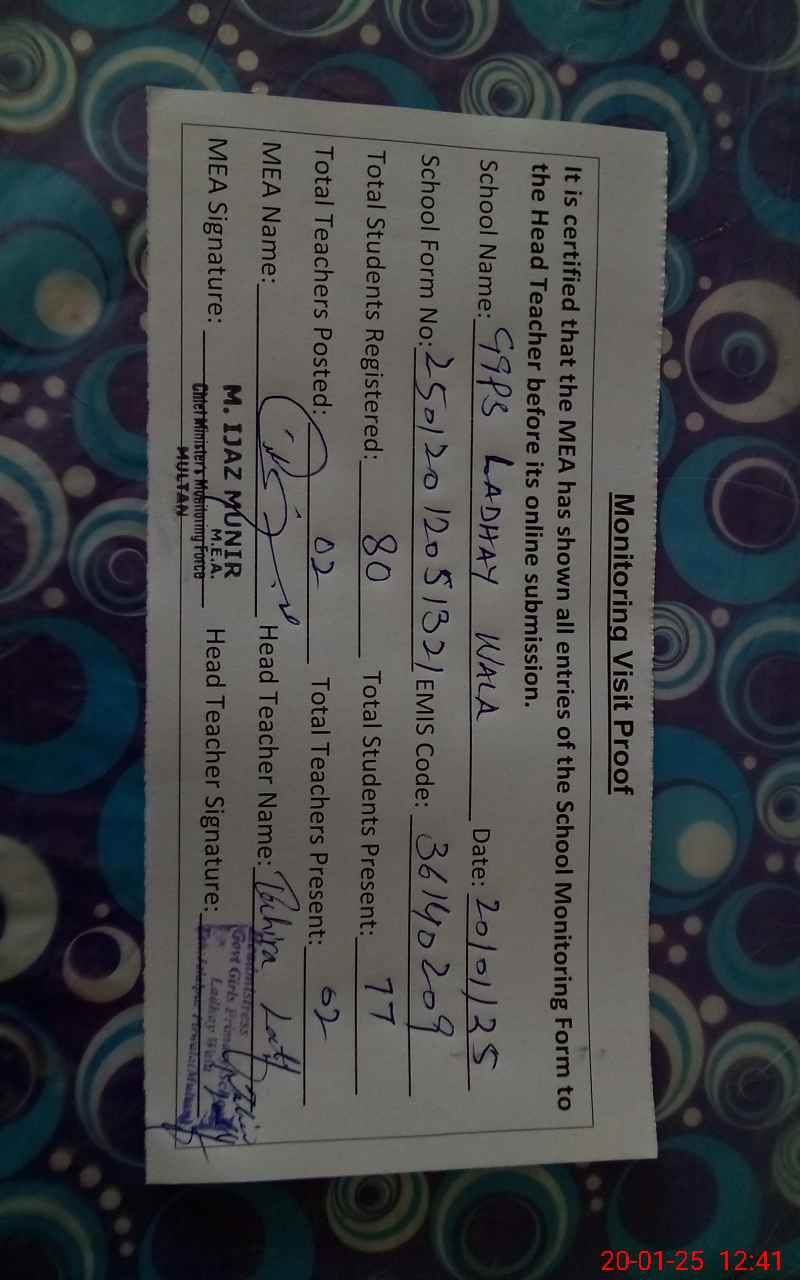 Monitoring Visit Proof
It is certified that the MEA has shown all entries of the School Monitoring Form to
the Head Teacher before its online submission.
School Name: GGPS LADHAY WALA Date: 20/01/25
School Form No: 25012012051321 EMIS Code: 36140209
Total Students Registered: 80 Total Students Present: 77
Total Teachers Posted: 02 Total Teachers Present: 02
MEA Name: Head Teacher Name: Tahira
MEA Signature: M. IJAZ MUNIR Head Teacher Signature:
M.E.A.
Chief Minister's Monitoring Force
MULTAN
Govt Girls
Ladhay Wala
20-01-25 12:41